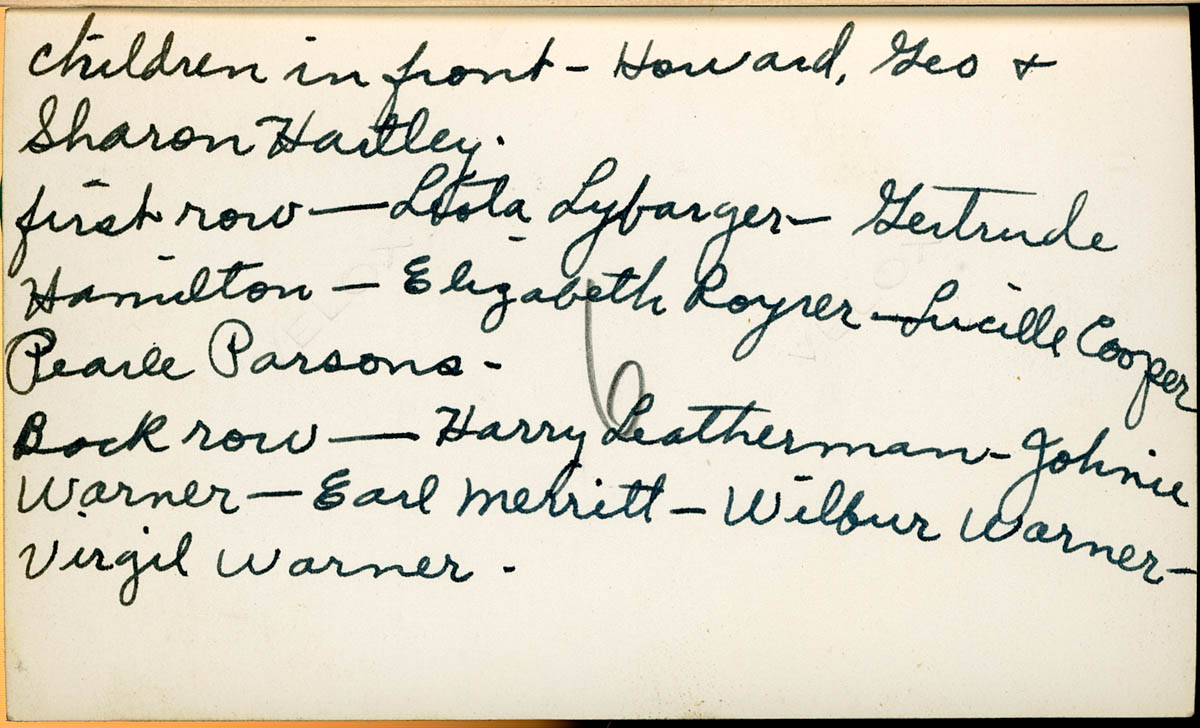 children in front - Howard, Geo +
Sharon Hartley.
first row — Lola Lybarger - Gertrude
Hamilton - Elizabeth Royrer - Lucille Cooper
Pearle Parsons -
Back row — Harry Leatherman - Johnie
Warner - Earl Merritt - Wilbur Warner -
Virgil Warner -
6